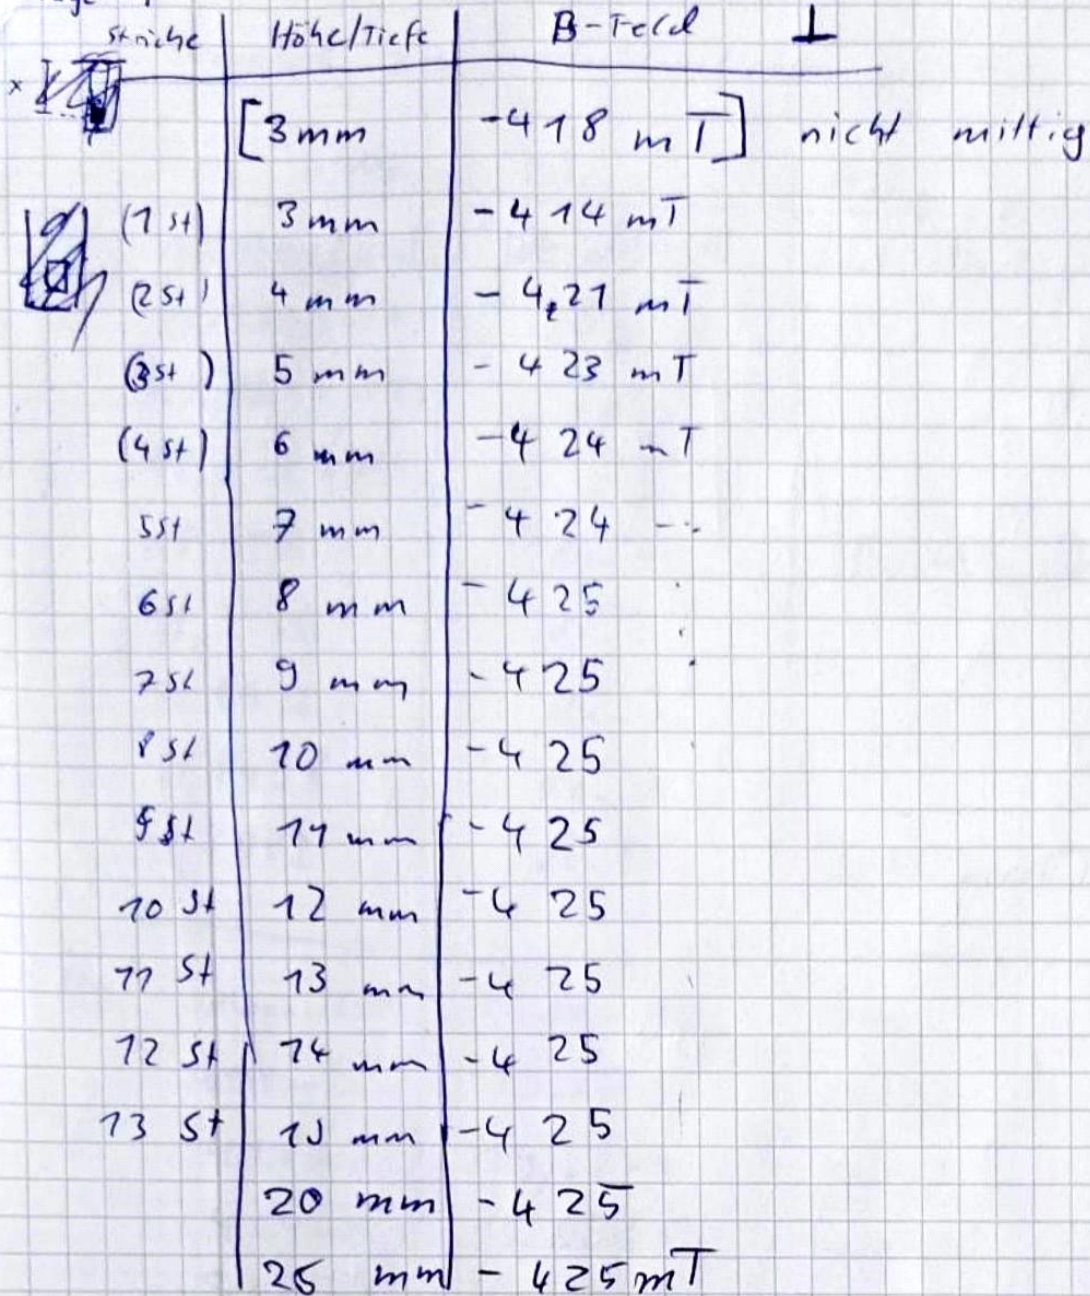 Striche Höhe/Tiefe B-Feld ⊥
x [3 mm -418 mT] nicht mittig
(1 st) 3 mm -414 mT
(2 st) 4 mm -4,21 mT
(3 st) 5 mm -423 mT
(4 st) 6 mm -424 mT
5 st 7 mm -424 -·
6 st 8 mm -425
7 st 9 mm -425
8 st 10 mm -425
9 st 11 mm -425
10 st 12 mm -425
11 st 13 mm -425
12 st 14 mm -425
13 st 15 mm -425
20 mm -425
25 mm -425 mT